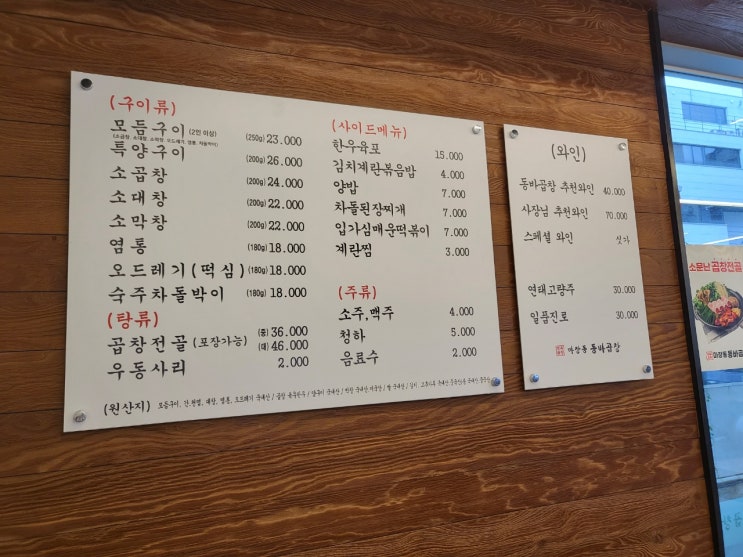 (구이류)
모듬구이 (2인 이상) (250g) 23.000
특양구이 (200g) 26.000
소곱창 (200g) 24.000
소대창 (200g) 22.000
소막창 (200g) 22.000
염통 (180g) 18.000
오드레기(떡심) (180g) 18.000
숙주차돌박이 (180g) 18.000
(탕류)
곱창전골 (포장가능) (중) 36.000
(대) 46.000
우동사리 2.000
(사이드메뉴)
한우육포 15.000
김치계란볶음밥 4.000
양밥 7.000
차돌된장찌개 7.000
입가심매운떡볶이 7.000
계란찜 3.000
(주류)
소주,맥주 4.000
청하 5.000
음료수 2.000
(원산지)
(와인)
동바곱창 추천와인 40.000
사장님 추천와인 70.000
스페셜 와인 싯가
연태고량주 30.000
일품진로 30.000
마장동 동바곱창
소문난 곱창전골
마장동 동바곱